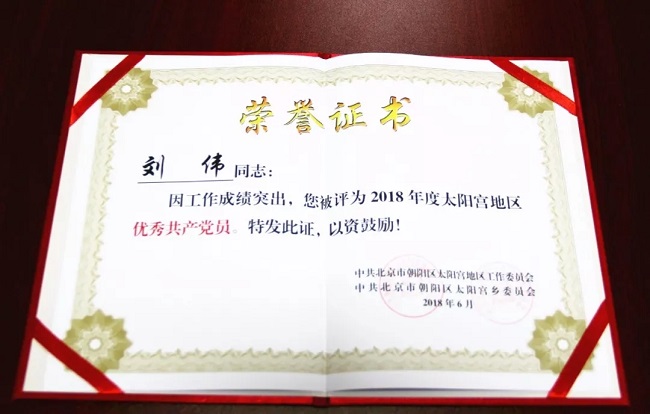 荣誉证书
刘 伟 同志：
因工作成绩突出，您被评为 2018 年度太阳宫地区
优秀共产党员。特发此证，以资鼓励！
中共北京市朝阳区太阳宫地区工作委员会
中共北京市朝阳区太阳宫乡委员会
2018 年 6 月